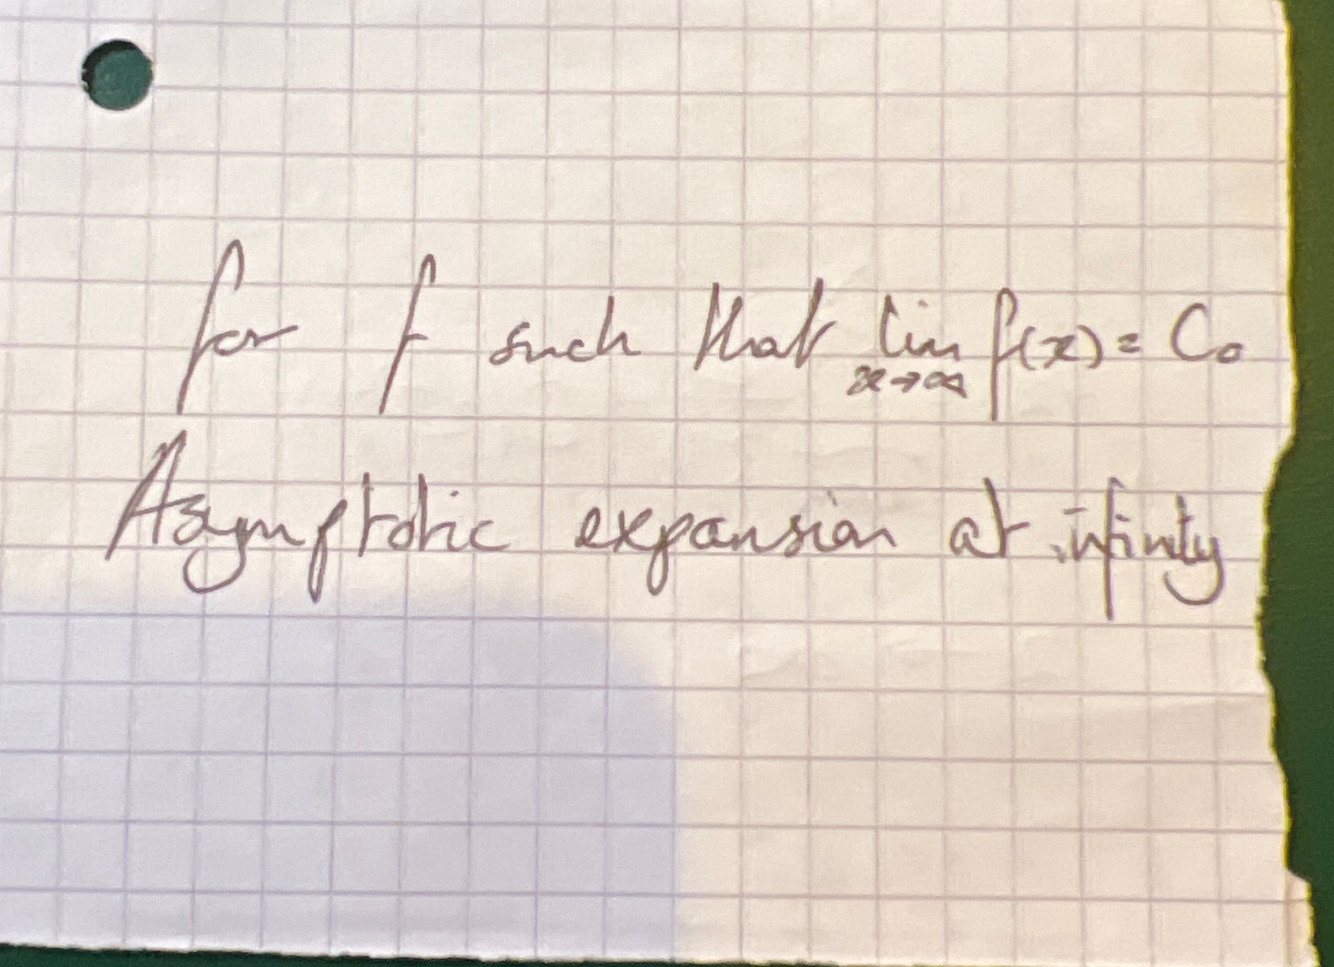 for f such that lim x→∞ f(x) = C₀
Asymptotic expansion at infinity